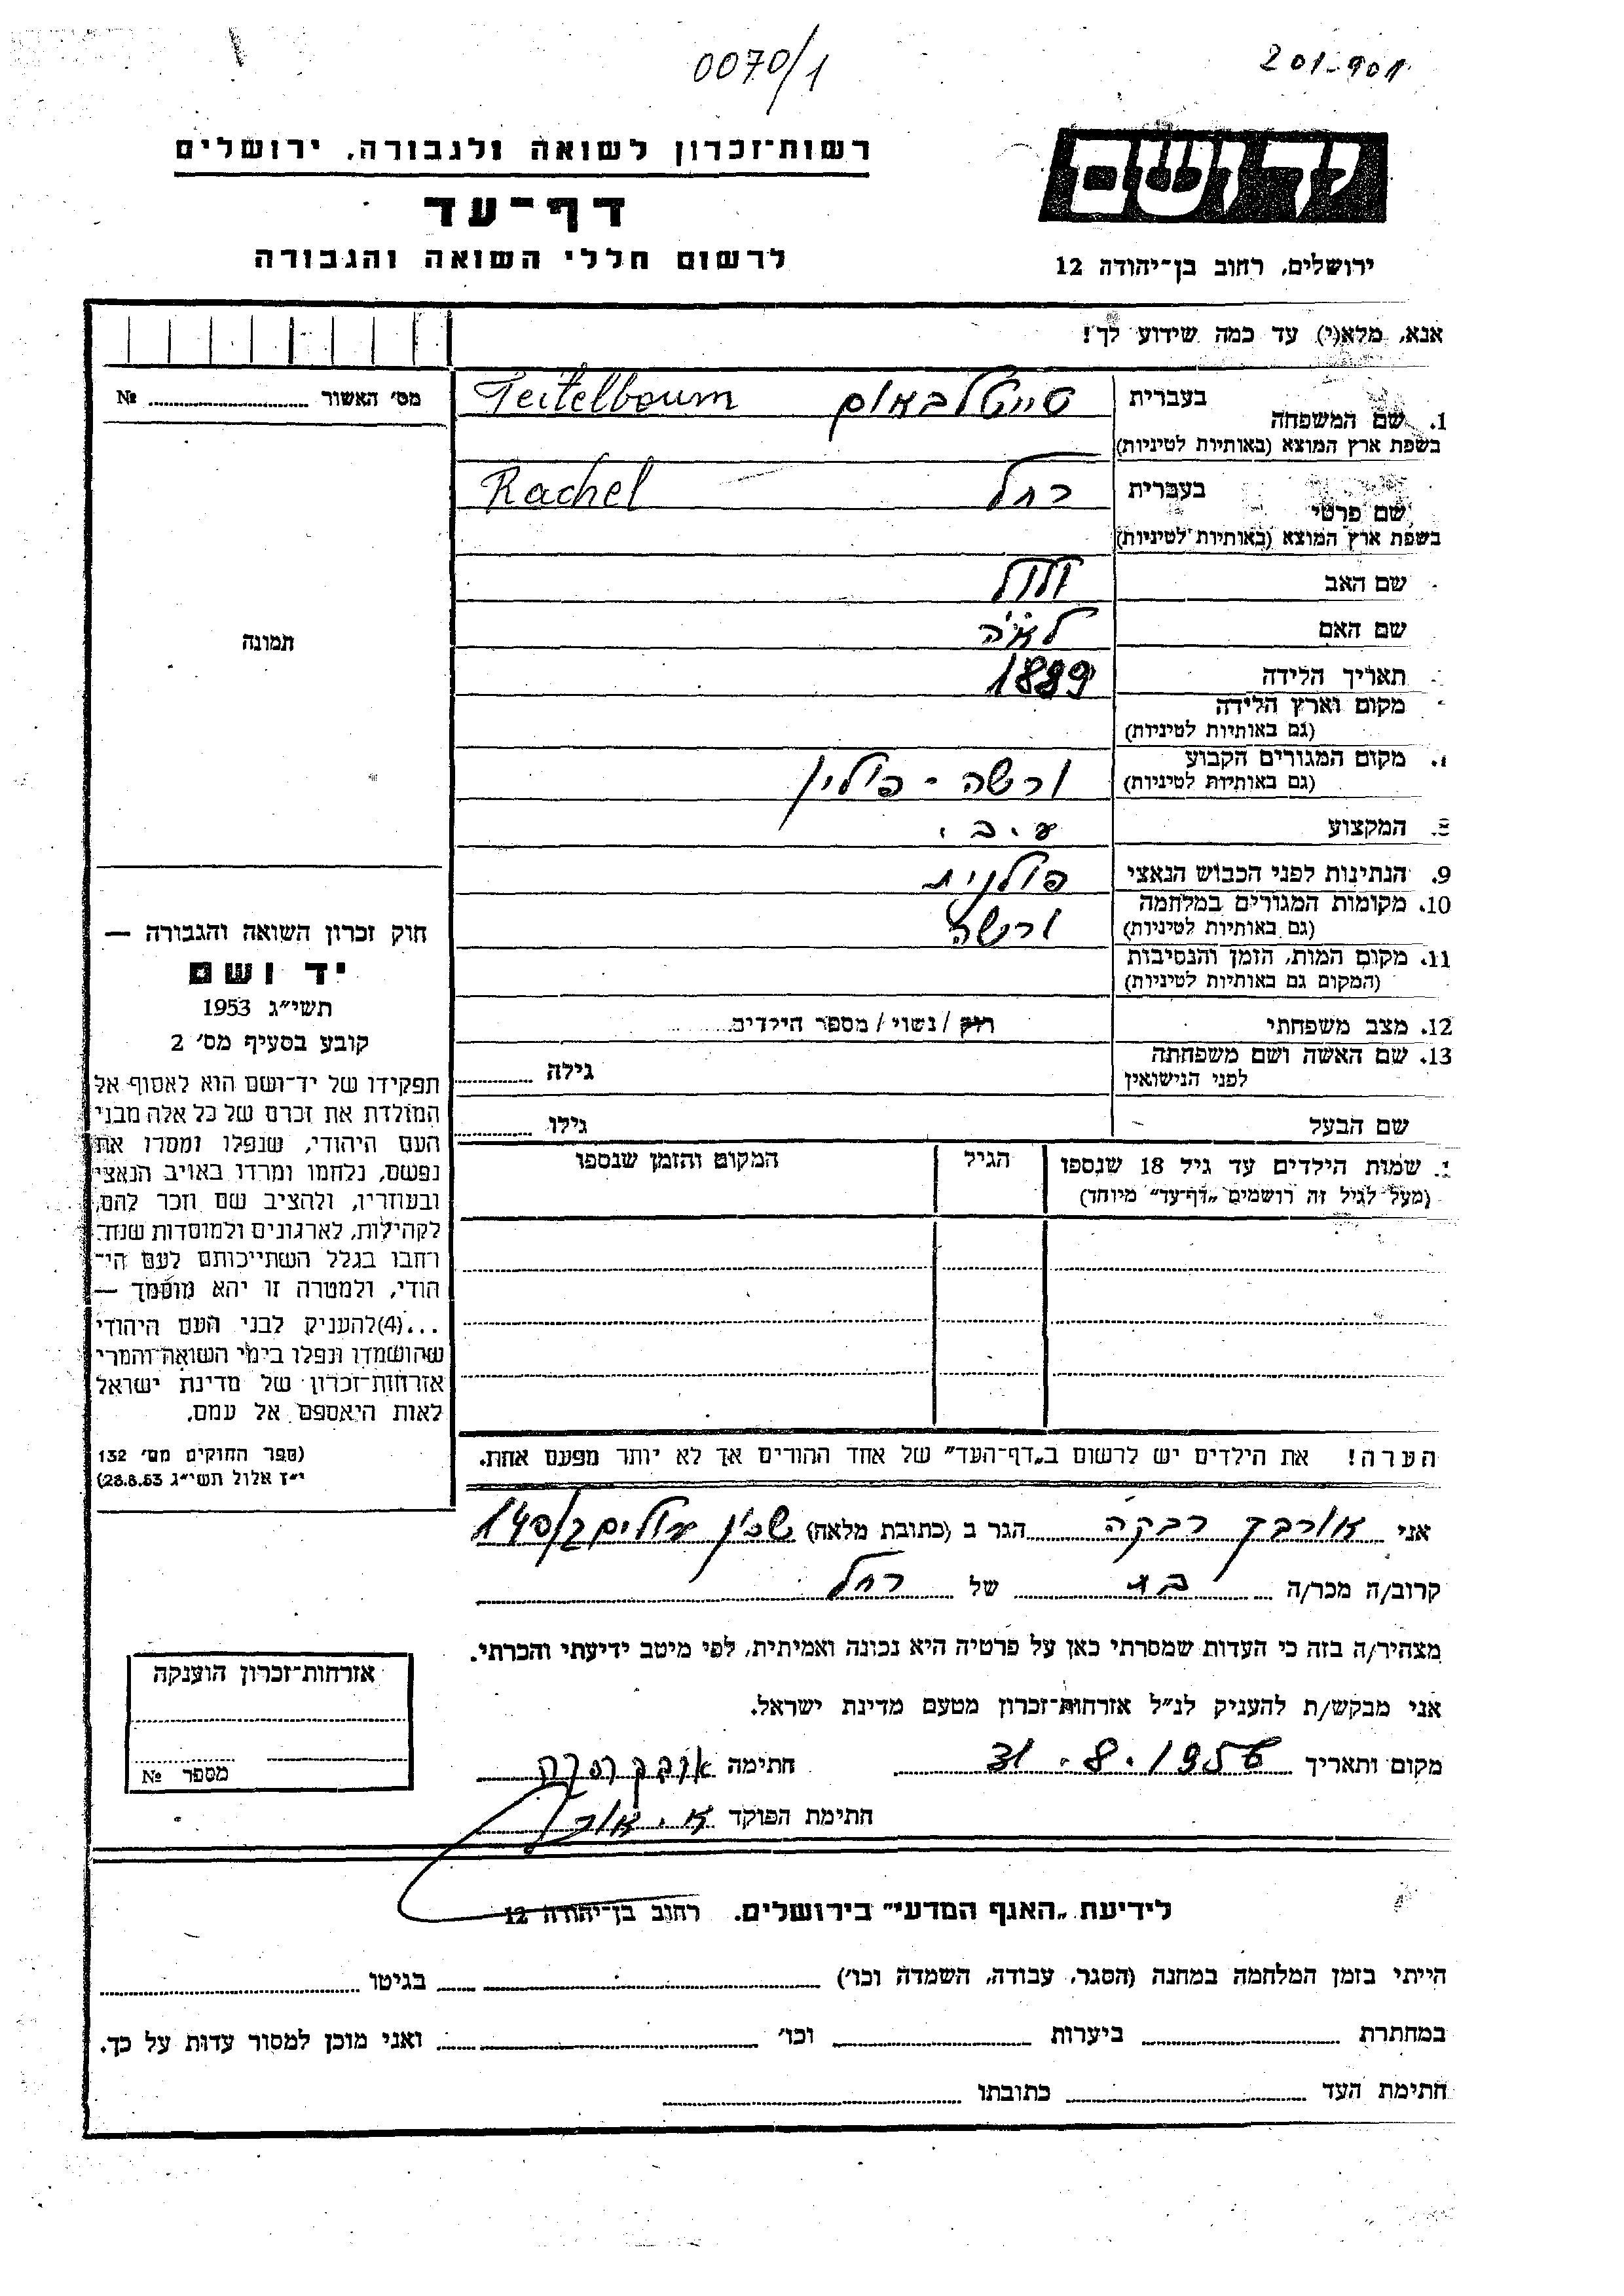 0070/1
201-901
יד ושם
רשות־זכרון לשואה ולגבורה, ירושלים
דף־עד
לרשום חללי השואה והגבורה
ירושלים, רחוב בן־יהודה 12
אנא, מלא(י) עד כמה שידוע לך!
מס׳ האשור ........ №
1. שם המשפחה בעברית טייטלבאום Teitelboum
בשפת ארץ המוצא (באותיות לטיניות)
שם פרטי בעברית רחל Rachel
בשפת ארץ המוצא (באותיות לטיניות)
שם האב
שם האם לאה
תאריך הלידה 1889
מקום וארץ הלידה
(גם באותיות לטיניות)
מקום המגורים הקבוע ורשה - פולין
(גם באותיות לטיניות)
8. המקצוע ע.ב.
9. הנתינות לפני הכבוש הנאצי פולנית
10. מקומות המגורים במלחמה ורשה
(גם באותיות לטיניות)
11. מקום המות, הזמן והנסיבות
(המקום גם באותיות לטיניות)
12. מצב משפחתי רווק / נשוי / מספר הילדים........
13. שם האשה ושם משפחתה גילה ........
לפני הנישואין
שם הבעל גילו ........
שמות הילדים עד גיל 18 שנספו הגיל המקום והזמן שנספו
(מעל לגיל זה רושמים „דף־עד״ מיוחד)
הערה! את הילדים יש לרשום ב„דף־העד״ של אחד ההורים אך לא יותר מפעם אחת.
תמונה
חוק זכרון השואה והגבורה —
יד ושם
תשי״ג 1953
קובע בסעיף מס׳ 2
תפקידו של יד־ושם הוא לאסוף אל
המולדת את זכרם של כל אלה מבני
העם היהודי, שנפלו ומסרו את
נפשם, נלחמו ומרדו באויב הנאצי
ובעוזריו, ולהציב שם וזכר להם,
לקהילות, לארגונים ולמוסדות שנח־
רחבו בגלל השתייכותם לעם הי־
הודי, ולמטרה זו יהא מוסמך —
...(4)להעניק לבני העם היהודי
שהושמדו ונפלו בימי השואה והמרי
אזרחות־זכרון של מדינת ישראל
לאות היאספם אל עמם.
(ספר החוקים מס׳ 132
י״ז אלול תשי״ג 28.8.53)
אני אורבך רבקה הגר ב (כתובת מלאה) שכון עולים ג/140
קרוב/ה מכר/ה בת של רחל
מצהיר/ה בזה כי העדות שמסרתי כאן על פרטיה היא נכונה ואמיתית, לפי מיטב ידיעתי והכרתי.
אני מבקש/ת להעניק לנ״ל אזרחות־זכרון מטעם מדינת ישראל.
מקום ותאריך 31.8.1956 חתימה
חתימת הפוקד
אזרחות־זכרון הוענקה
מספר №
לידיעת „האגף המדעי״ בירושלים. רחוב בן־יהודה 12
הייתי בזמן המלחמה במחנה (הסגר, עבודה, השמדה וכו׳) ........ בגיטו ........
במחתרת ........ ביערות ........ וכו׳ ........ ואני מוכן למסור עדות על כך.
חתימת העד ........ כתובתו ........